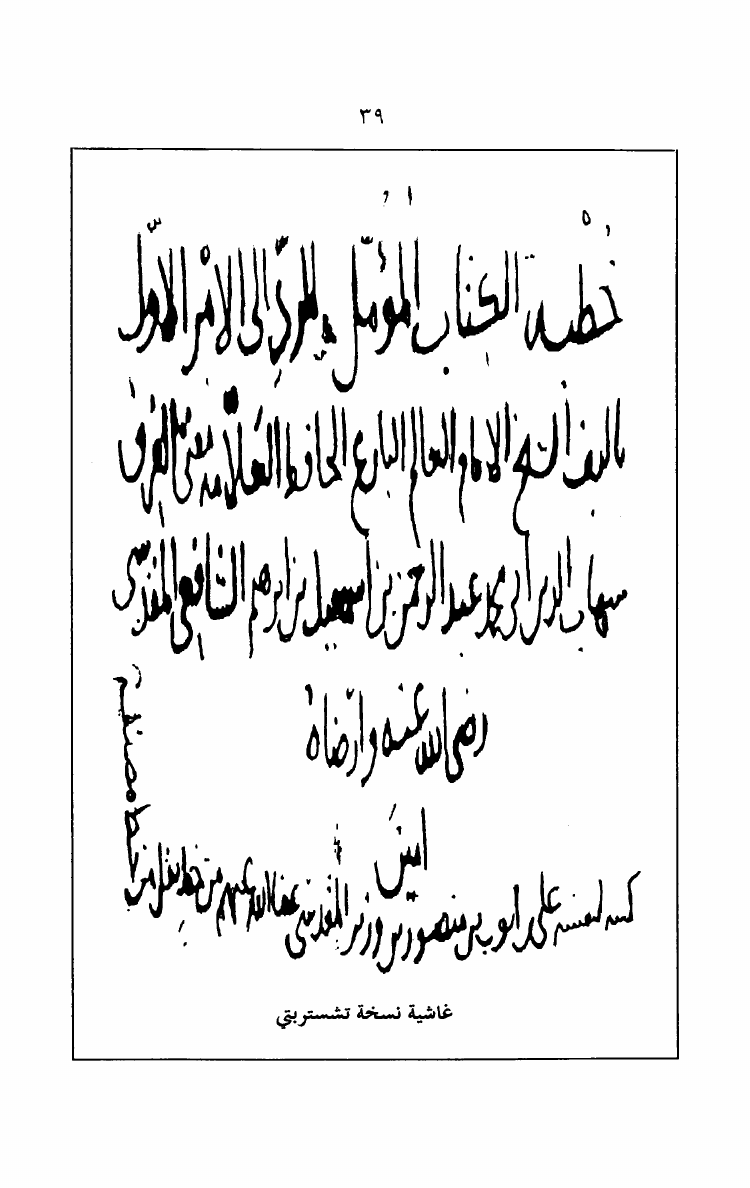 ٣٩
خطبة الكتاب المؤمل للرد إلى الأمر الأول
تاليف الشيخ الامام العالم البارع الحافظ العلامة مفتى الفرق
شهاب الدين أبي محمد عبد الرحمن بن اسمعيل بن ابرهيم الشافعي المقدسي
رضى الله عنه وارضاه
امين
كتبه لنفسه على بن ايوب بن منصور بن وزير المقدسي عفا الله عنهم من خط نقل من
خط مصنفه
غاشية نسخة تشستربتي